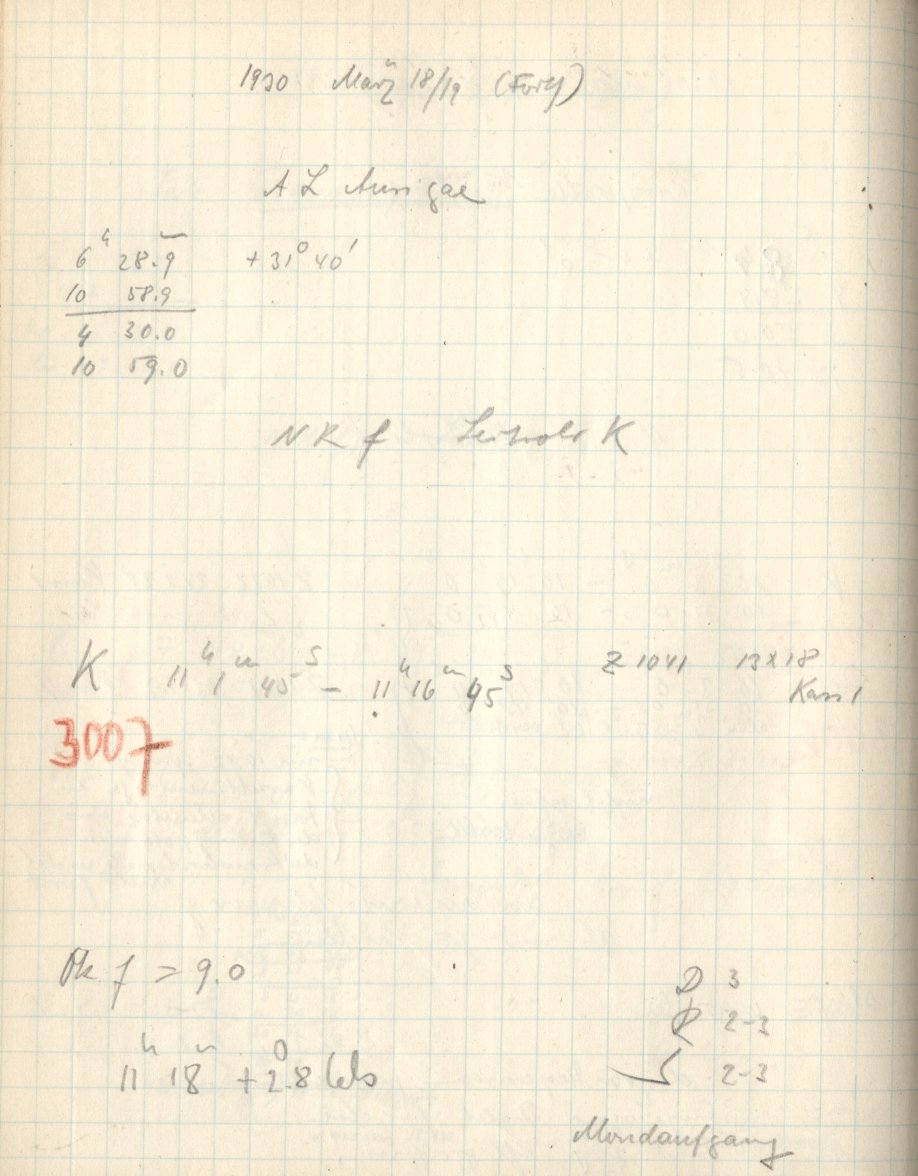 1930 März 18/19 (Forts)
A L Aurigae
6h 28.m9 +31° 40'
10 58.9
4 30.0
10 59.0
N R f Leitrohr K
K 11h 1m 45s – 11h 16m 45s Z 1041 13x18
Kass 1
3007
Ok. f = 9.0
D 3
R 2-3
11h 18m +2.°8 Cels
2-3
Mondaufgang